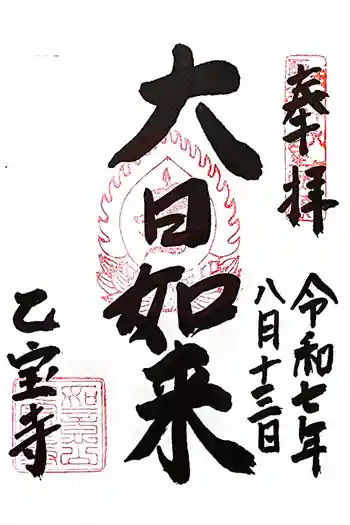 奉拝
令和七年
八月十三日
大日如来
乙宝寺